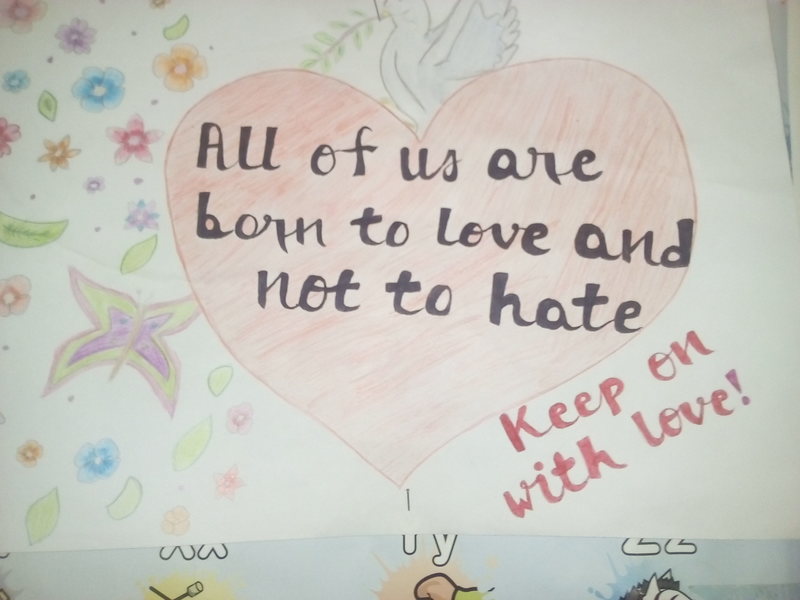 All of us are
born to love and
not to hate
Keep on
with love!
Xx
Yy
Zz